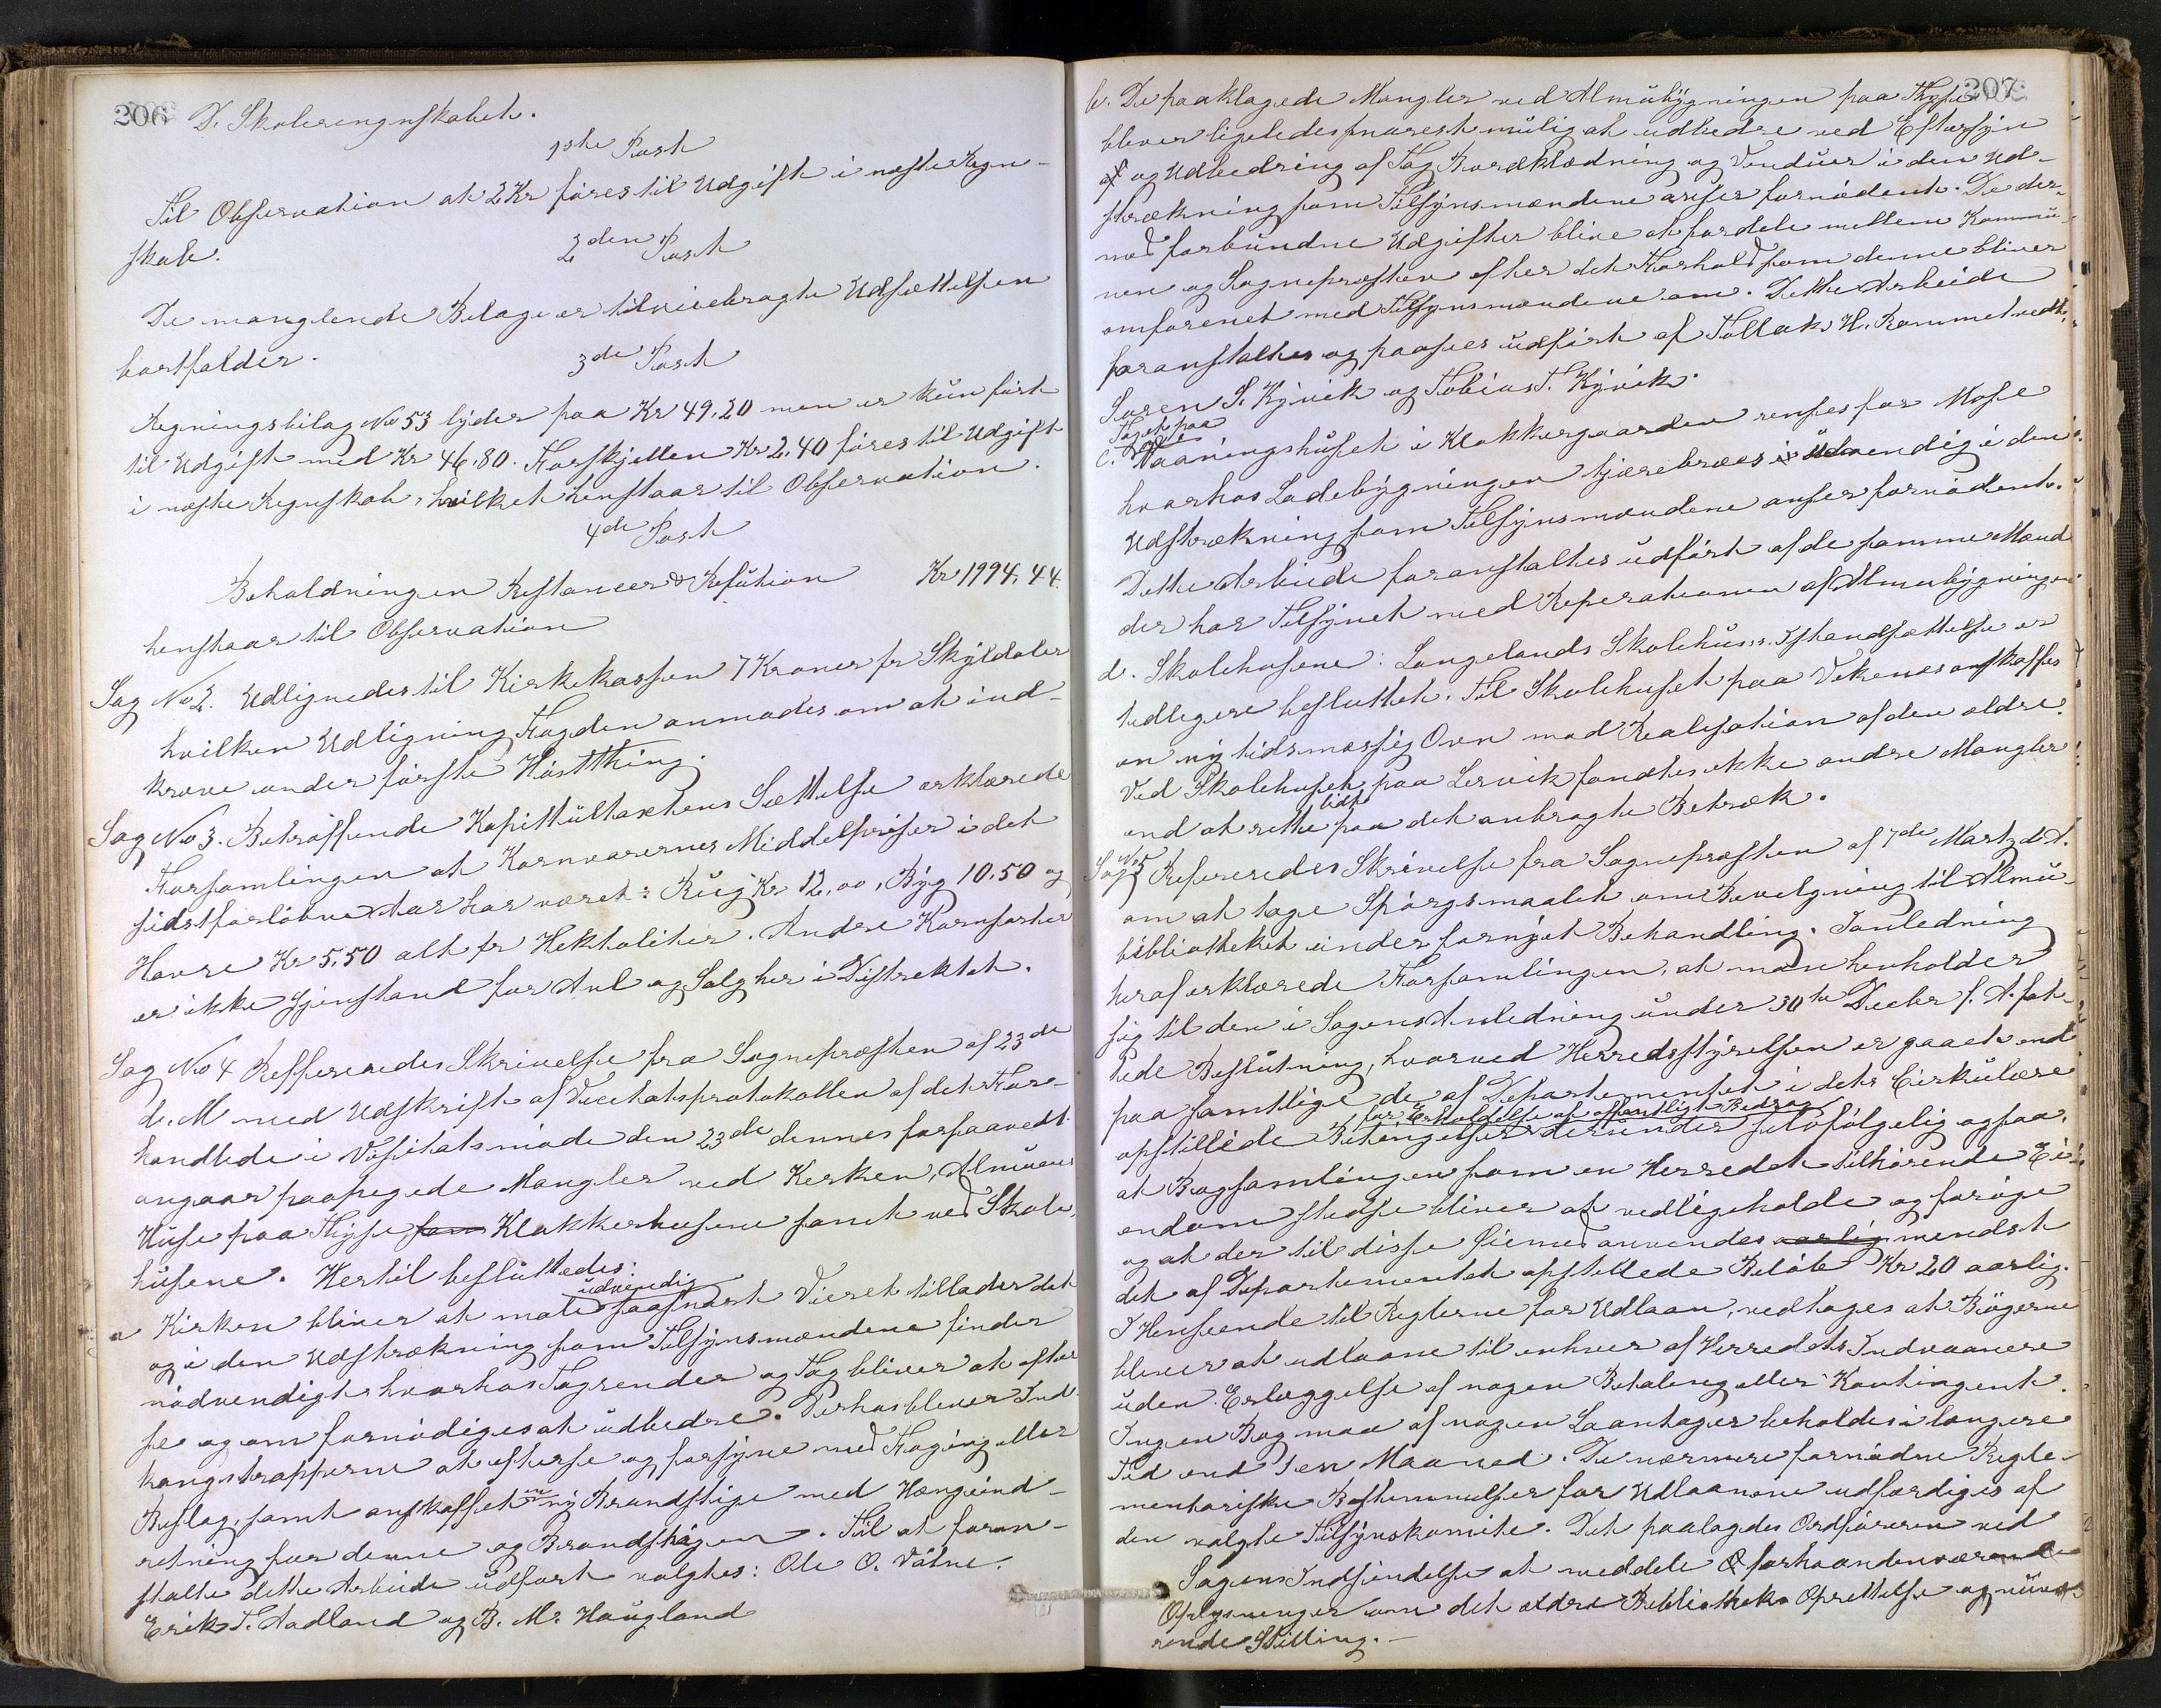 206
D. Skoleregnskabet.
1ste Post
Til Observation at 2 Kr föres til Udgift i næste Regn-
skab.
2den Post
De manglende Bilage er tilveiebragte Udsættelsen
bortfalder.
3de Post
Regningsbilag No 53 lyder paa Kr 49,20 men er kun fört
til Udgift med Kr 46.80. Forskjellen Kr 2,40 föres til Udgift
i næste Regnskab, hvilket henstaar til Observation.
4de Post
Beholdningen Restancer & Resution Kr 1994,44.
henstaar til Observation
Sag No 2. Udlignedes til Kirkekassen 7 Kroner pr Skylddaler
hvilken Udligning Fogden anmodes om at ind-
kræve under förste Hösttthing.
Sag No 3. Beträffende Kapittultaxtens Sættelse erklærede
Forsamlingen at Kornvarernes Middelpriser i det
sidstforløbne Aar har været: Rug Kr 12,00, Byg 10.50 og
Havre Kr 5,50 alt pr Hektoliter. Andre Kornsorter
er ikke Gjenstand for Avl og Salg her i Distrektet.
Sag No 4 Reffereredes Skrivelse fra Sognepræsten af 23de
d. M med Udskrift af Visitatsprotokollen af det For-
handlede i Visitatsmöde den 23de dennes forsaavedt
angaar paapegede Mangler ved Kirken, Almuens
Huse paa Thyse som Klokkerhusene samt ved Skole-
husene. Hertil besluttedes:
udvendig
a Kirken bliver at male saasnart Veiret tillader det
og i den Udstrækning som Tilsynsmændene finder
nödvendigt hvorhos Tagrender og Tag bliver at efter-
se og om fornödiges at udbedre. Derhos bliver Ind-
kangstrapperne at efterse og forsyne med Fuging eller
Beslag, samt anskaffet en ny Brandstige med Hængeind-
retning for denne og Brandshagen. Til at foran-
stalte dette Arbeide udfört valgtes: Ole O. Våtne.
Erik T. Aadland og B. M. Haugland
207
b. De paaklagede Mangler ved Almubygningen paa Thyse
bliver ligeledes snarest mulig at udbedre ved Eftersyn
af og Udbedring af Tag Bordklædning og Vinduer i den Ud-
strækning som Tilsynsmændene anser fornödent. De der-
med forbundne Udgifter blive at fordele mellem Kommu-
nen og Sognepræsten efter det Forhold som denne bliver
omforenet med Tilsynsmændene om. Dette Arbeide
foranstaltes og paasees udfört af Tollak H. Rommetvedt,
Soren S. Kyvik og Tobias T. Kyvik.
Taget paa
c. Vaaningshuset i Klokkergaarden renses for Mose
hvorhos Ladebygningen tjærebræes i udvendig i den
Udstrækning som Tilsynsmændene anser fornödent.
Dette Arbeide foranstaltes udfört af de samme Mænd
der har Tilsynet med Reperationen af Almuebygningen
d. Skolehusene: Langelands Skolehuss Istandsættelse er
tedligere besluttet. Til Skolehuset paa Vekenes anskaffes
en ny tidsmæssig Ovn mod Realisation af den ældre.
Ved Skolehuset paa Lervik fandtes ikke andre Mangler
end at rette lidt paa det anbragte Betræk.
Sag No 5 Refereredes Skrivelse fra Sognepræsten af 7de Marts d. A.
om at tage Spörgsmaalet om Bevilgning til Almu-
bibliotheket under fornyet Behandling. I anledning
heraf erklærede Forsamlingen, at man henholder
sig til den i Sagens Anledning under 30te Decbr f. A. fat-
tede Beslutning, hvorved Herredsstyrelsen er gaaet ind
paa samtlige de af Departementet i dets Cirkulære
for Erholdelse af offentligt Bidrag
opstillede Betingelser derunder selvfölgelig ogsaa,
at Bogsamlingen som en Herredet tilhörende Ei-
endom stedse bliver at vedligeholde og foröge
og at der til disse Öiemed anvendes aarlig mindst
det af Departementet opstillede Belöb Kr 20 aarlig.
I Henseende til Reglerne for Udlaan, vedtoges at Bögerne
bliver at udlaane til enhver af Herredets Indvaanere
uden Erlæggelse af nogen Betaling eller Kontingent.
Ingen Bog maa af nogen Laantager beholdes i længere
Tid end 1 en Maaned. De nærmere fornödne Regle-
mentariske Bestemmelser for Udlaanene udfærdiges af
den valgte Tilsynskomite. Det paalagdes Ordföreren ved
Sagens Indsendelse at meddele forhaandenværende
Oplysninger om det ældre Bibliotheks Oprettelse og nuvæ-
rende Stilling.—